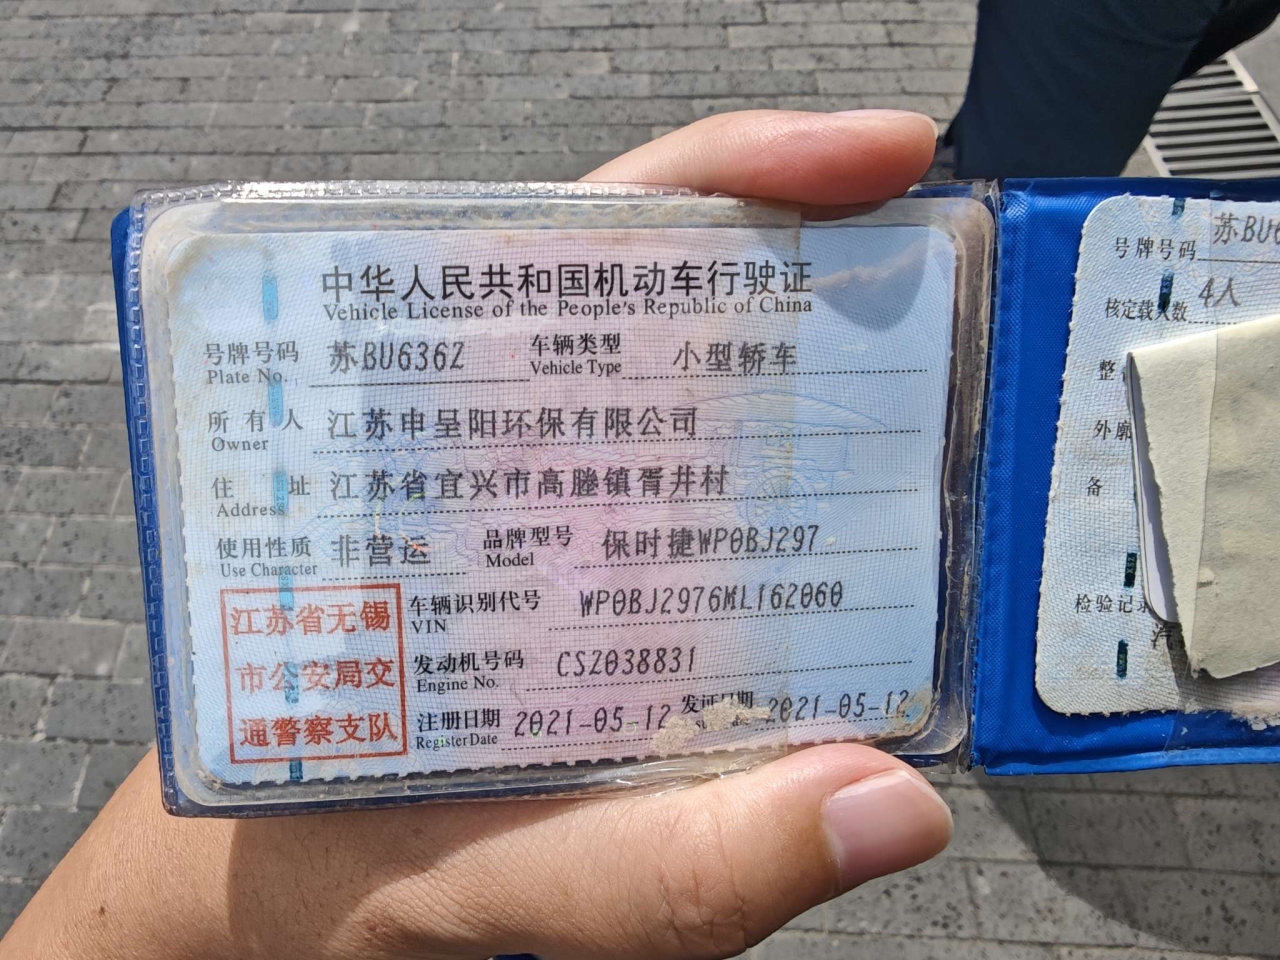 中华人民共和国机动车行驶证
Vehicle License of the People's Republic of China
号牌号码 苏BU636Z 车辆类型 小型轿车
Plate No. Vehicle Type
所有人 江苏申呈阳环保有限公司
Owner
住址 江苏省宜兴市高塍镇胥井村
Address
使用性质 非营运 品牌型号 保时捷WP0BJ297
Use Character Model
江苏省无锡
市公安局交
通警察支队
车辆识别代号 WP0BJ2976ML162060
VIN
发动机号码 CSZ038831
Engine No.
注册日期 2021-05-12 发证日期 2021-05-12
Register Date
号牌号码 苏BU6
核定载人数 4人
整
外廓
备
检验记录
汽